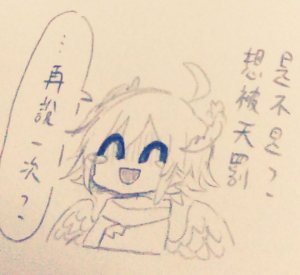 是不是?
想被天罰
…再說一次?